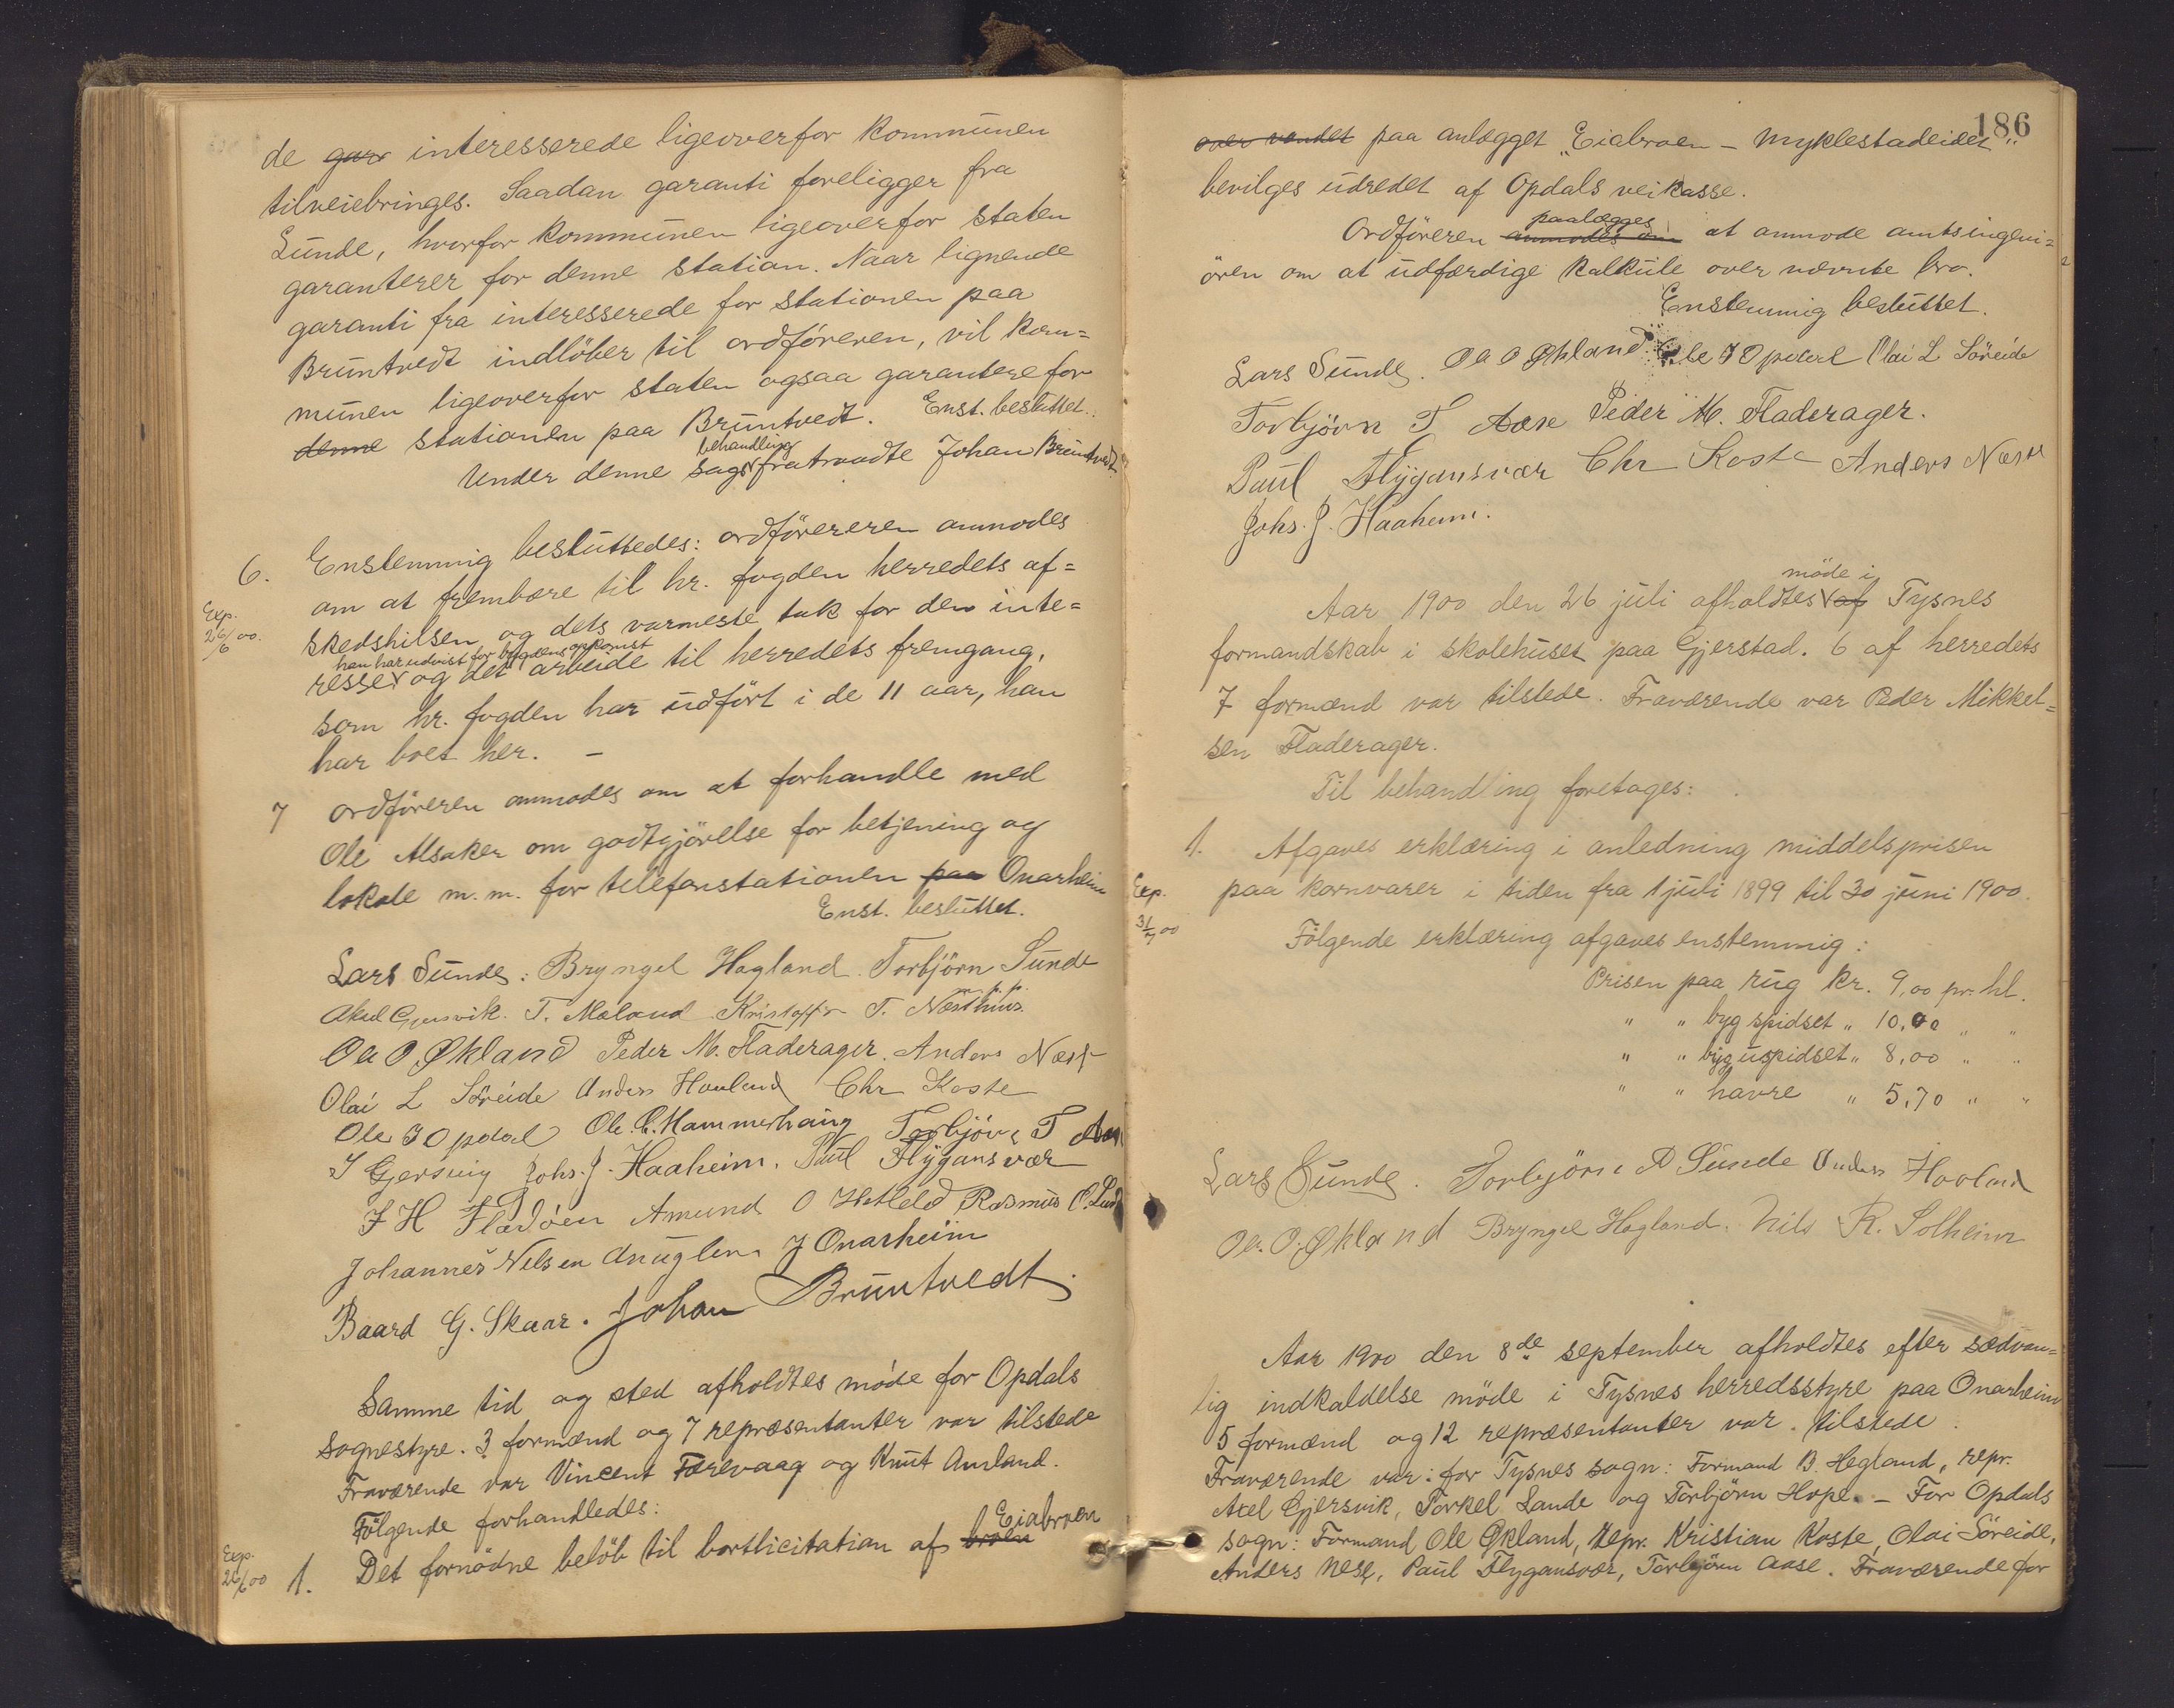 de gar interesserede ligeoverfor kommunen
tilveiebringes. Saadan garanti foreligger fra
Sunde, hvorfor kommunen ligeoverfor staten
garanterer for denne station. Naar lignende
garanti fra interesserede for stationen paa
Bruntvedt indlöber til ordföreren, vil kom=
munen ligeoverfor staten ogsaa garantere for
denne stationen paa Bruntvedt. Enst. besluttet.
behandling
Under denne sags fratraadte Johan Bruntvedt.
6. Enstemmig besluttedes: ordförereren anmodes
om at frembære til hr. fogden herredets af=
Exp. 26/6 00.
skedshilsen og dets varmeste tak for den inte=
han har udvist for bygdens opkomst
resse og det arbeide til herredets fremgang,
som hr. fogden har udfört i de 11 aar, han
har boet her. –
7 Ordföreren anmodes om at forhandle med
Ole Alsaker om godtgjörelse for betjening og
lokale m. m. for telefonstationen paa Onarheim
Enst. besluttet.
Lars Sunde. Bryngel Hagland. Torbjörn Sunde
m. p. p.
Aksel Gjersvik. T. Meland Kristoffer T. Næsthus
Ole O. Økland Peder M. Fladerager. Anders Nese
Olai L Söreide Anders Hovland Chr Koste
Ole J Opdal Ole C. Hammerhaug Torbjörn T Aase
J Gjersvig Johs. J. Haaheim. Paul Flygansvær
J H Fladöen Amund O Hetleld Rasmus O. Lund
Johannes Nilsen Anuglen J Onarheim
Baard G. Skaar. Johan Bruntvedt.
Samme tid og sted afholdtes möde for Opdals
sognestyre. 3 formænd og 7 repræsentanter var tilstede
Fraværende var Vincent Færevaag og Knut Amland.
Fölgende forhandledes:
Eiabroen
Exp. 26/6 00 1. Det fornödne belöb til bortlicitation af broen
186
over vandet paa anlægget „Eiabroen – Myklestadeidet"
bevilges udredet af Opdals veikasse.
paalægges
Ordföreren anmodes om at anmode amtsingeni=
ören om at udfærdige kalkule over nævnte bro.
Enstemmig besluttet.
Lars Sunde. Ole O Økland Ole J Opdal Olai L Söreide
Torbjörn T Aase Peder M. Fladerager.
Paul Flygansvær Chr Koste Anders Nese
Johs. J. Haaheim.
möde i
Aar 1900 den 26 juli afholdtes af Tysnes
formandskab i skolehuset paa Gjerstad. 6 af herredets
7 formænd var tilstede. Fraværende var Peder Mikkel=
sen Fladerager.
Til behandling foretoges:
1. Afgaves erklæring i anledning middelsprisen
Exp. 31/7 00
paa kornvarer i tiden fra 1 juli 1899 til 30 juni 1900.
Fölgende erklæring afgaves enstemmig:
Prisen paa rug kr. 9,00 pr. hl.
" " byg spidset " 10,00 " "
" " byg uspidset " 8,00 " "
" " havre " 5,70 " "
Lars Sunde. Torbjörn A Sunde Anders Hovland
Ole. O. Økland Bryngel Hagland. Nils R. Solheim
Aar 1900 den 8de september afholdtes efter sædvan=
lig indkaldelse möde i Tysnes herredsstyre paa Onarheim
5 formænd og 12 repræsentanter var tilstede.
Fraværende var: for Tysnes sogn: Formand B. Hegland, repr.
Axel Gjersvik, Torkel Lande og Torbjörn Hope. – For Opdals
sogn: Formand Ole Økland, Repr. Kristian Koste, Olai Söreide,
Anders Nese, Paul Flygansvær, Torbjörn Aase. Fraværende for